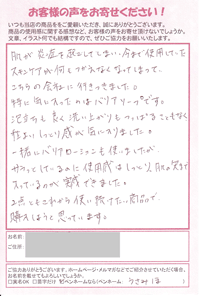 お客様の声をお寄せください!
いつも当店の商品をご愛顧いただき、誠にありがとうございます。
商品の使用感に関する感想など、お客様の声をお寄せ頂けないでしょうか。
文章、イラスト何でも結構ですので、ぜひご協力をお願いいたします。
肌が炎症を起こしてしまい、今まで使用していた
スキンケアが何もつかえなくなってしまって、
こちらの会社に行きつきました。
特に気に入ったのはバリアソープです。
泡立ちも良く洗い上がりもつっぱることもなく
しっとり感が気に入りました。
一緒にバリアローションも使いましたが、
サラッとしてるのに使用感はしっとり、肌が
いっているのが実感できました。
2点ともこれから使い続けたい商品で
購入しようと思っています。
お名前:
ご住所:
ご感想ありがとうございます。ホームページ・メルマガなどでご紹介させていただく場合、
お名前を掲載させてもよろしいでしょうか。
□実名OK □苗字だけ ペンネームなら(ペンネーム: うさみみ )